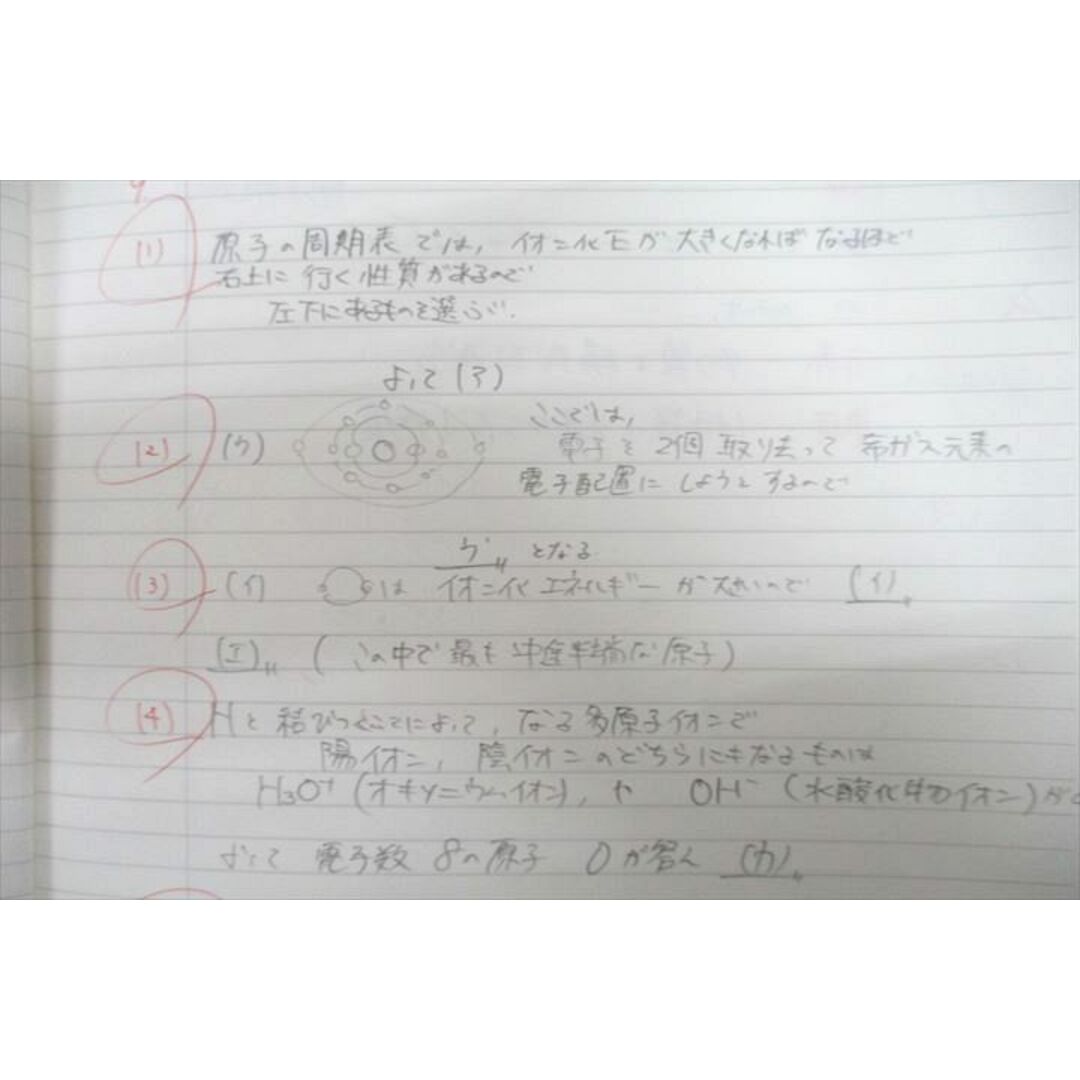 9.
(1) 原子の周期表では, イオン化Eが大きくなればなるほど
右上に行く性質があるので
左下にあるものを選ぶ.
よって(ア)
(2) (ウ) ここでは,
電子を2個取り去って希ガス元素の
電子配置にしようとするので
ウ となる
(3) (イ) は イオン化エネルギーが大きいので (イ)
(エ) (この中で最も中途半端な原子)
(4) Hと結びつくことによって, なる多原子イオンで
陽イオン, 陰イオンのどちらにもなるものは
H₃O⁺ (オキソニウムイオン), や OH⁻ (水酸化物イオン)が
よって 電子数 8の原子 Oが答え (カ)